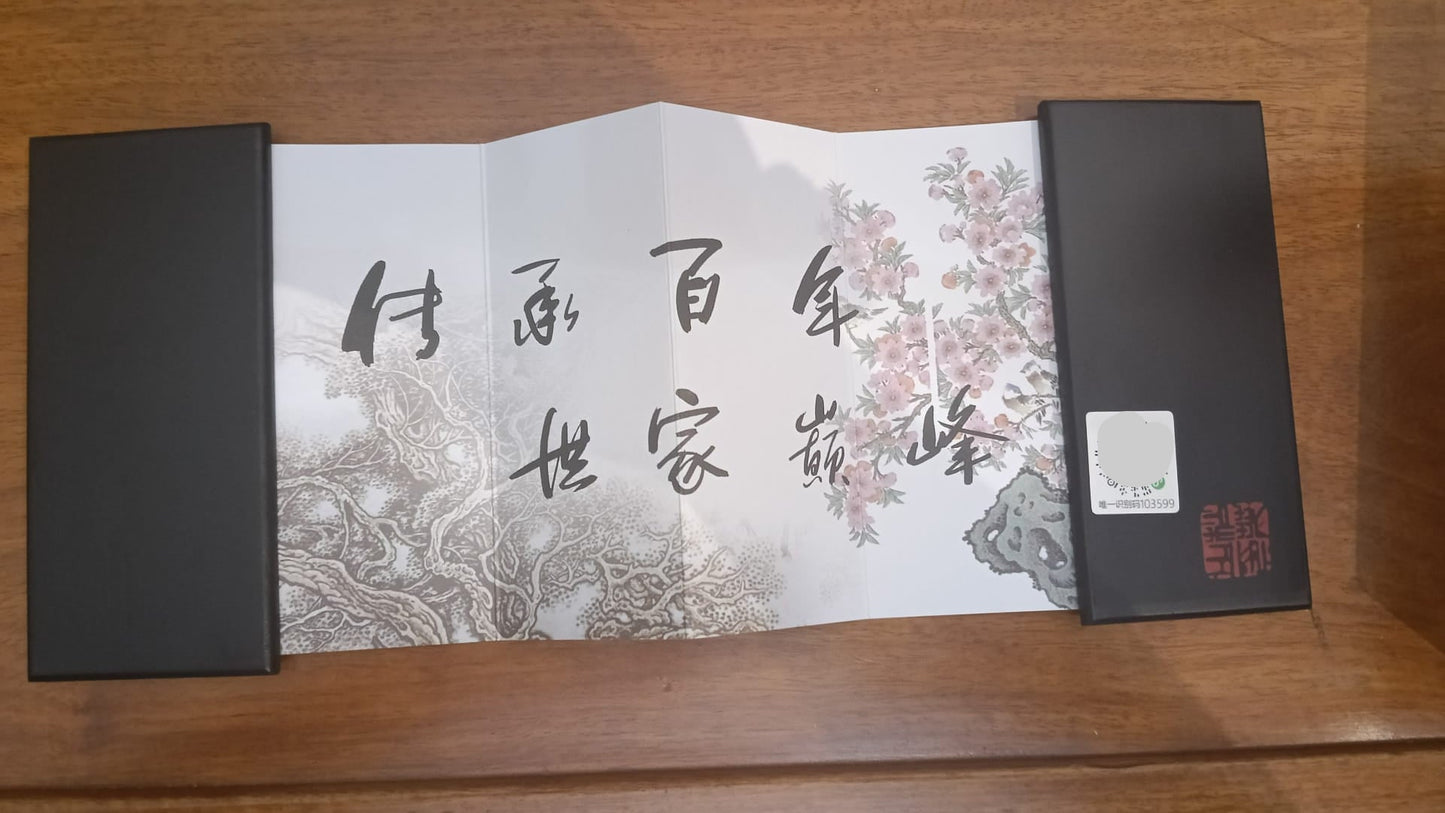 传承百年
世家巅峰
唯一识别码103599